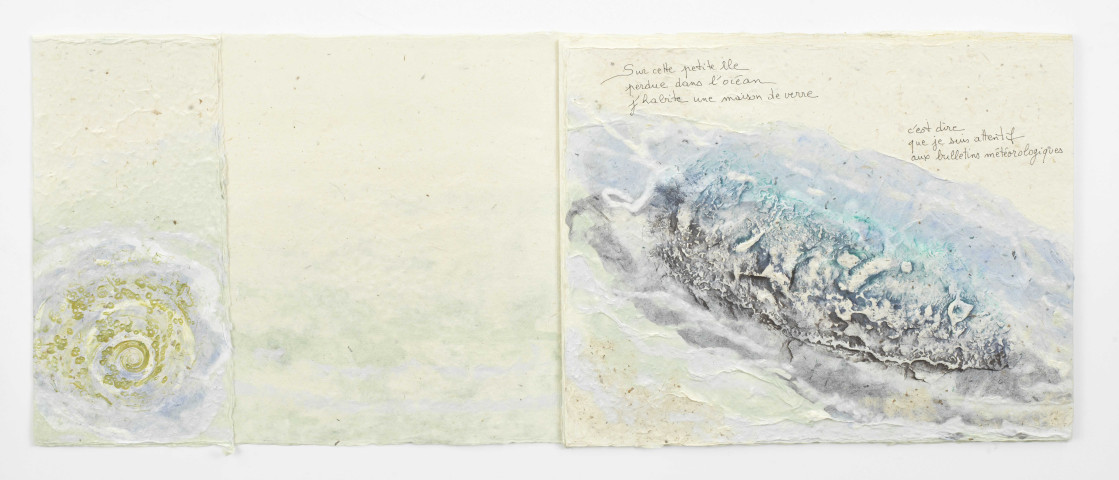 Sur cette petite île
perdue dans l'océan
j'habite une maison de verre
c'est dire
que je suis attentif
aux bulletins météorologiques